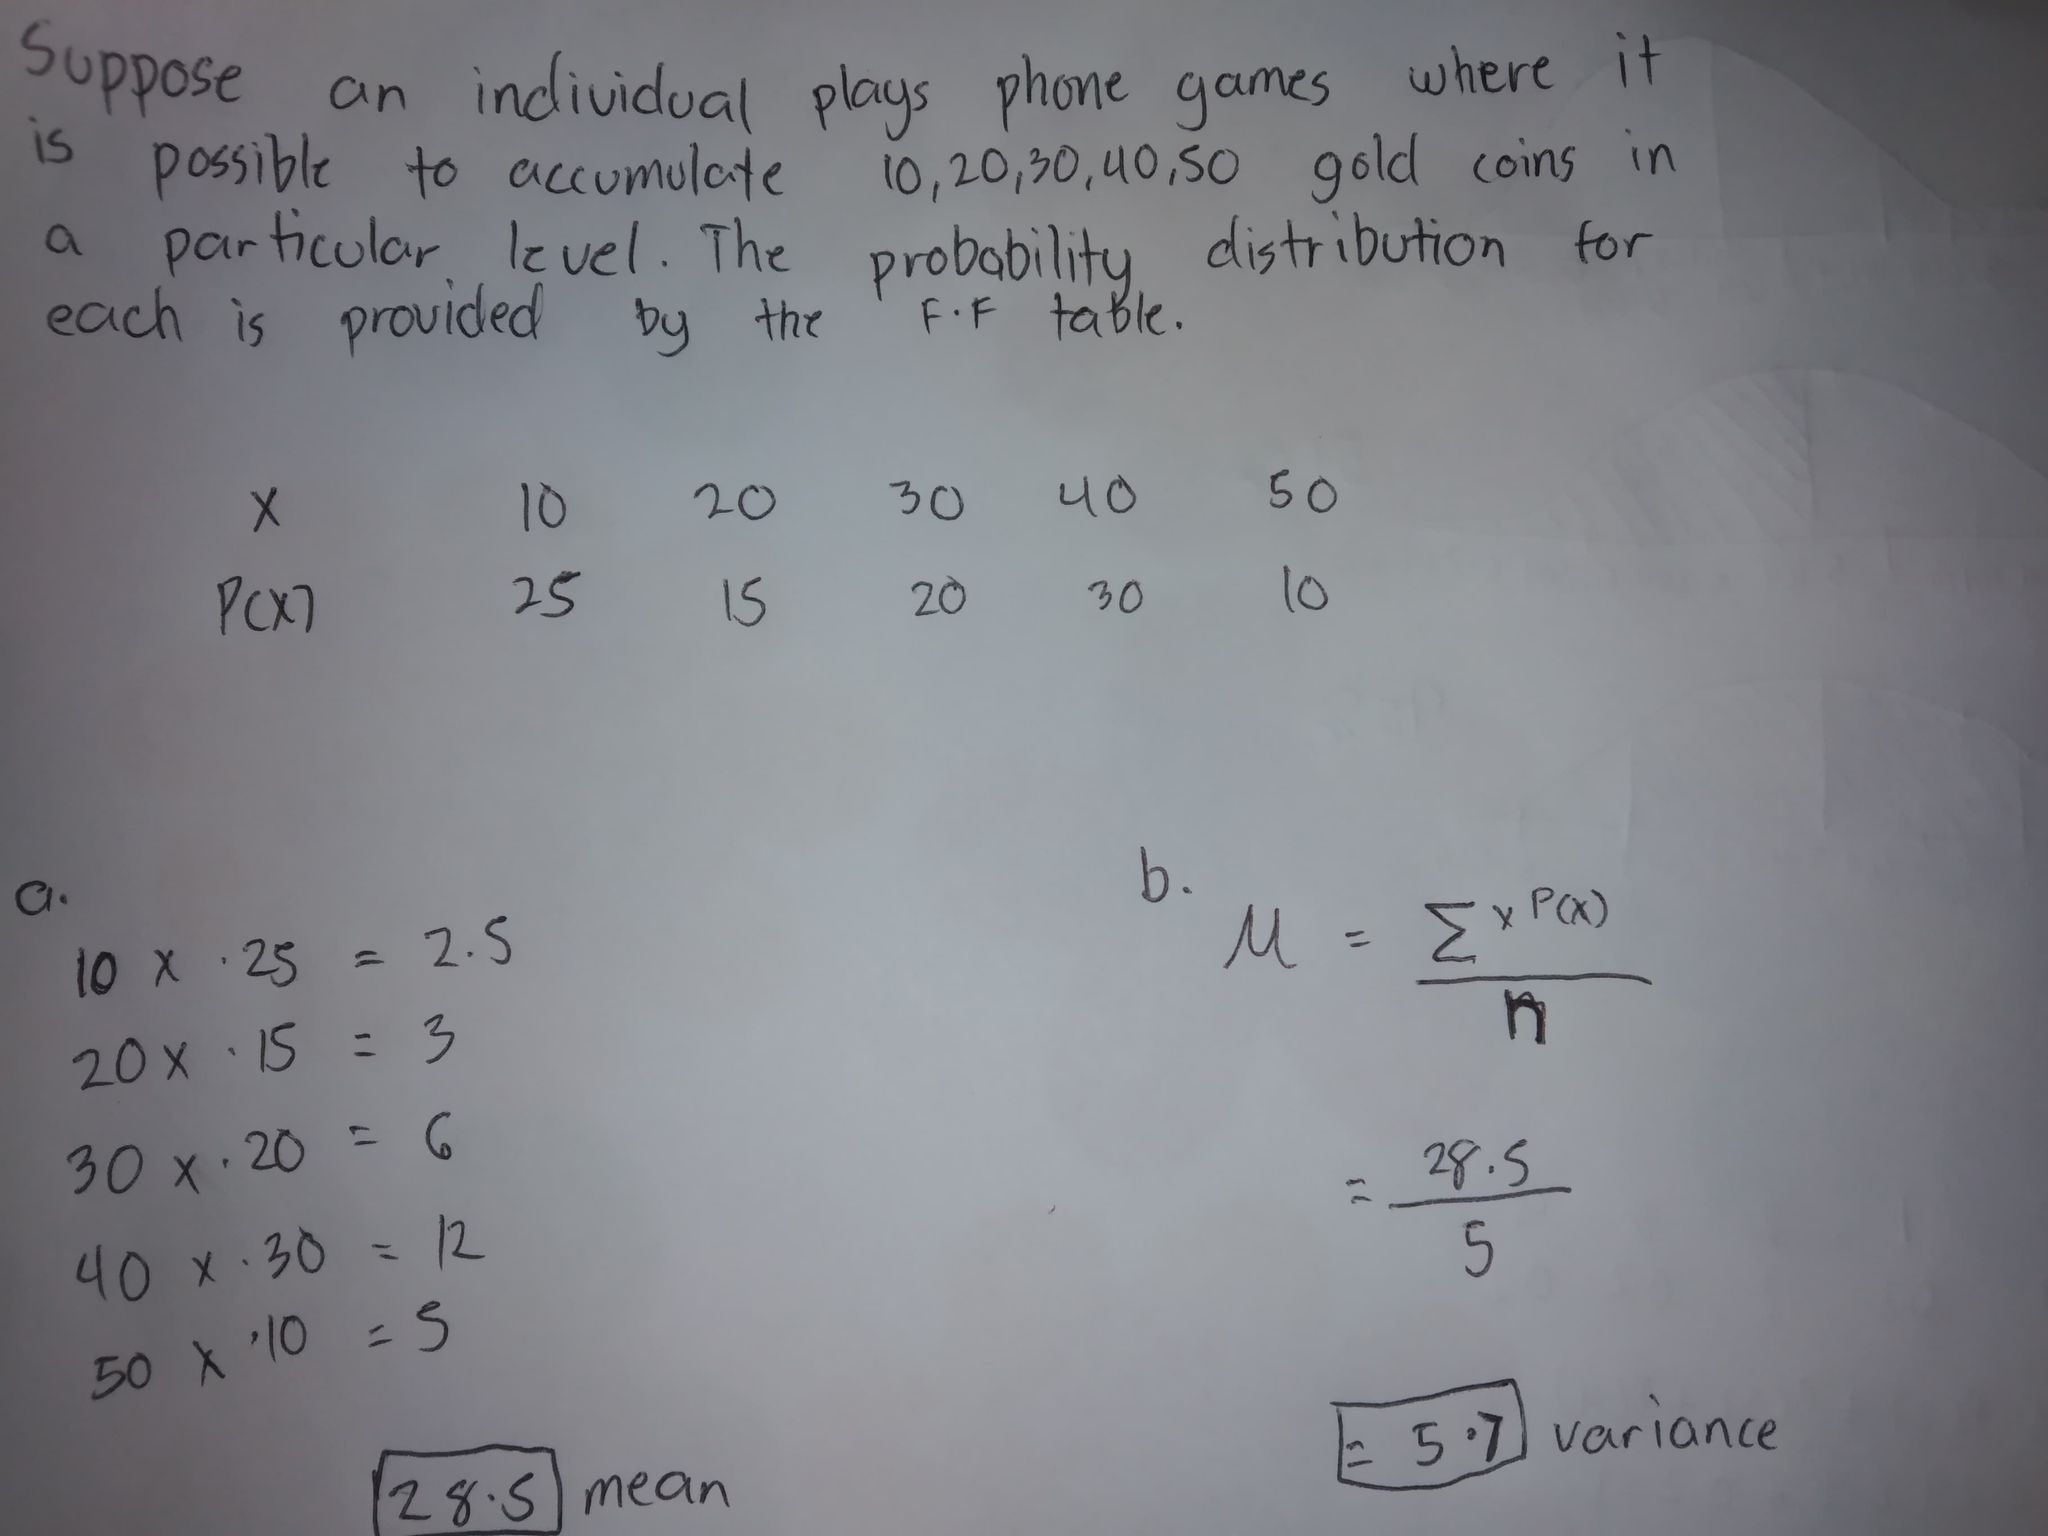 Suppose an individual plays phone games where it
is possible to accumulate 10,20,30,40,50 gold coins in
a particular level. The probability distribution for
each is provided by the F.F table.
X 10 20 30 40 50
P(X) 25 15 20 30 10
a.
10 x .25 = 2.5
20 x .15 = 3
30 x .20 = 6
40 x .30 = 12
50 x .10 = 5
28.5 mean
b.
M = Σ x P(x)
n
= 28.5
5
= 5.7 variance